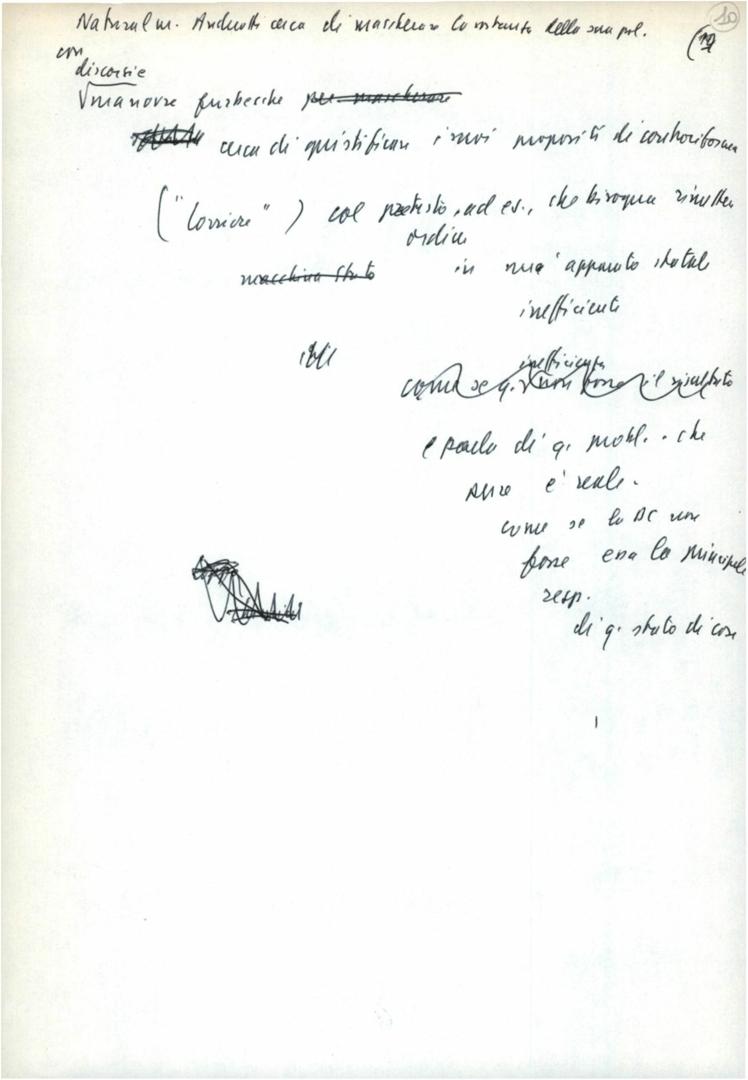 10
(12
Naturalm. Andreotti cerca di mascherare la sostanza della sua pol.
con
discorsi e
manovre furbesche per mascherare
cerca di giustificare i suoi propositi di controriforma
("Corriere") col pretesto, ad es., che bisogna rimettere
ordine
macchina Stato in un apparato statale
inefficiente
inefficiente
come se q. non fosse il risultato
e parla di q. probl. . che
pure è reale.
come se la DC non
fosse essa la principale
resp.
di q. stato di cose